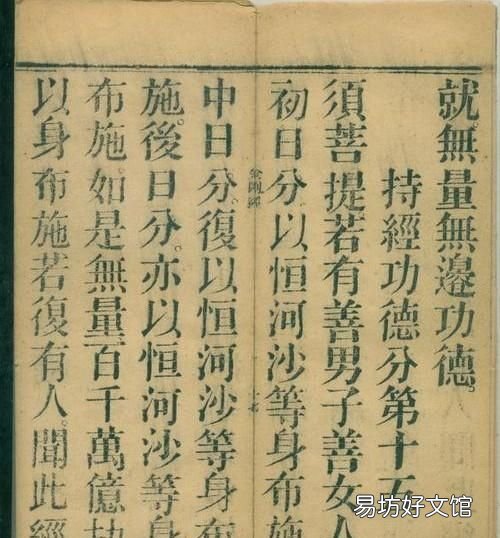 就無量無邊功德。
持經功德分第十五
須菩提若有善男子善女人
初日分。以恒河沙等身布施
金剛經
中日分。復以恒河沙等身布
施。後日分。亦以恒河沙等身
布施。如是無量百千萬億劫
以身布施。若復有人。聞此經
易坊好文馆